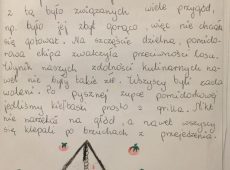 z tą było związanych wiele przygód,
np. było jej zbyt gorąco, więc nie chciała
się gotować. Na szczęście dzielna, pomido-
rowa ekipa zwalczyła przeciwności losu.
Wynik naszych zdolności kulinarnych na-
wet nie były takie złe. Wszyscy byli zado
woleni. Po pysznej zupie pomidorowej
jedliśmy kiełbaski prosto z grilla. Nikt
nie narzekał na głód, a nawet wszyscy
się klepali po brzuchach z przejedzenia.